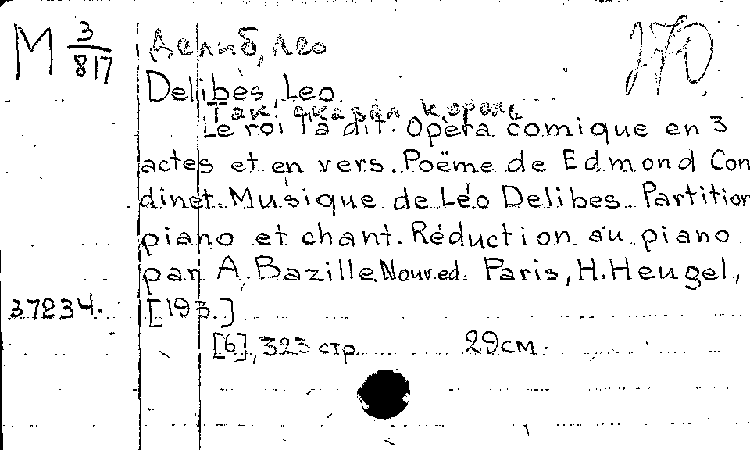 M 3/817
Делиб, Лео
270
Delibes, Leo
Так сказал король
Le roi l'a dit. Opéra comique en 3
actes et en vers. Poëme de Edmond Con
dinet. Musique de Léo Delibes. Partition
piano et chant. Réduction au piano
par A. Bazille. Nouv. ed. Paris, H. Heugel,
37234. [193.]
[6], 323 стр. 29см.